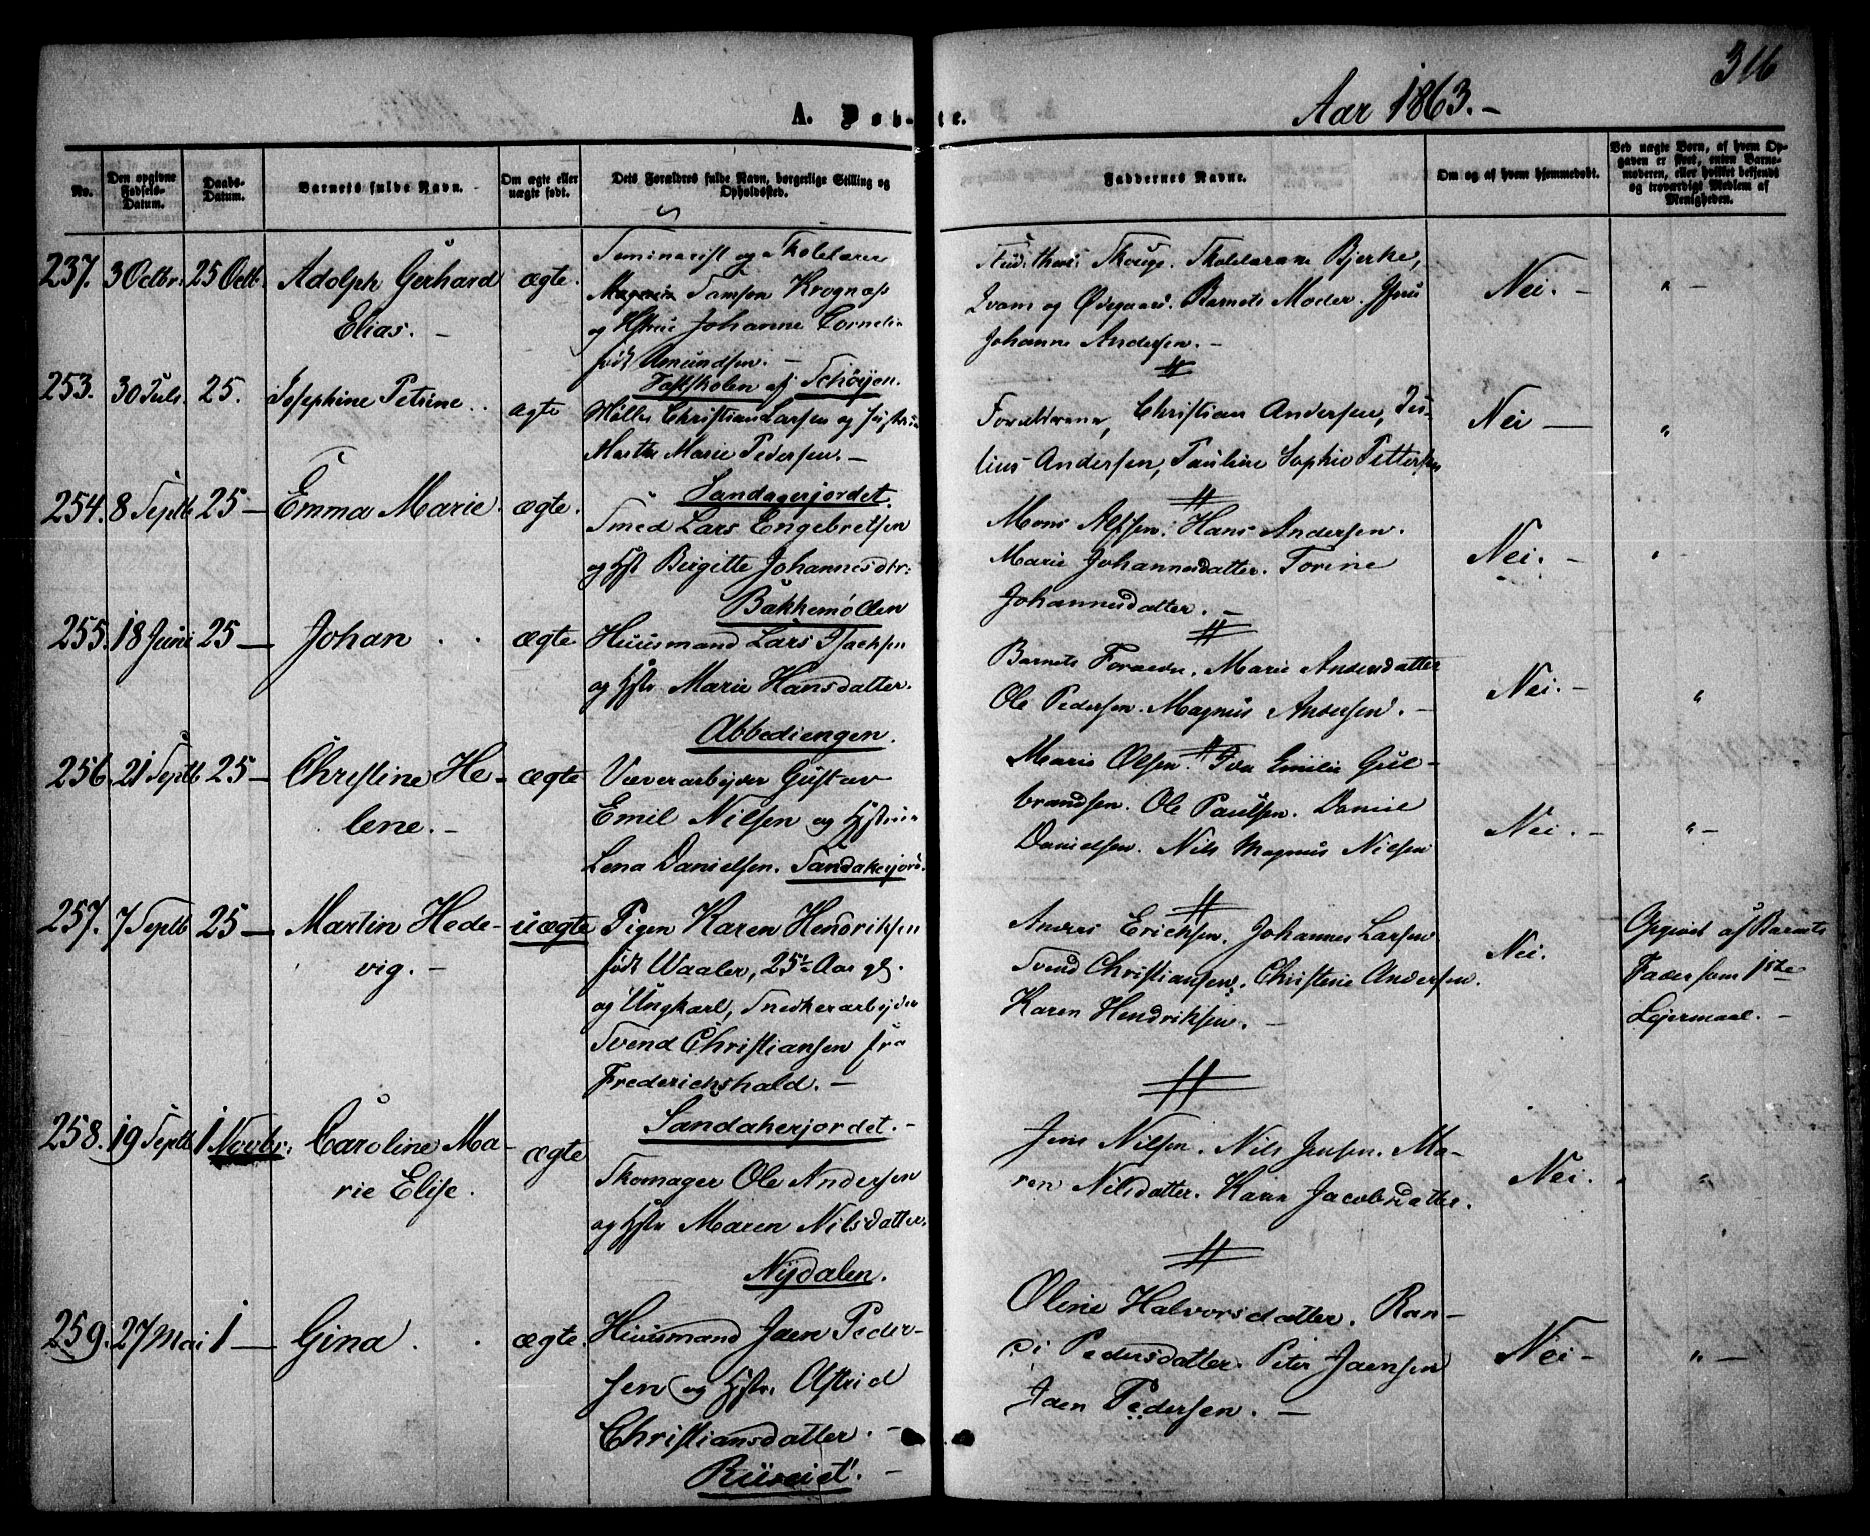 316
Aar 1863.-
A. Døb-te.
No.
Den opgivne
Fødsels-
Datum.
Daabs-
Datum.
Barnets fulde Navn.
Om ægte eller
uægte født.
Dets Forældres fulde Navn, borgerlige Stilling og
Opholdssted.
Faddernes Navne.
Om og af hvem hjemmedøbt.
Ved uægte Børn, af hvem Op-
gaven er skeet, enten Barne-
moderen, eller hvilket bekjendt
og troværdigt Medlem af
Menigheden.
237. 3 Octbr. 25 Octb. Adolph Gerhard
Elias. -
ægte.
Seminarist og Skolelærer
Samson Krognæs
og Hustrue Johanne Corneli
født Amundsen. -
Skouge. Skolelærerne Bjerke,
og Ødegaard. Barnets Moder.
Johanne Andersen. -
Nei. -
" -
253. 30 Juli. 25. Josephine Petrine.
ægte
Christian Larsen og
Marthe Marie Pedersen. -
Forældrene, Christian Andersen, Ju-
lius Andersen, Pauline Sophie Pettersen
Nei -
"
254. 8 Septb 25 - Emma Marie.
ægte.
Sandagerjordet.
Smed Lars Engebretsen
og Hst Birgitte Johannesdtr:
Bakkemøllen
Mons Hans Andersen.
Marie Johannesdatter. Torine
Johannesdatter. -
Nei. -
" -
255. 18 Juni 25 - Johan . .
ægte
Huusmand Lars Isacksen
og Hstr. Marie Hansdatter.
Abbediengen.
Barnets Forældre. Marie Andersdatter
Ole Pedersen. Magnus Andersen. -
Nei. -
"
256. 21 Septb 25 - Christine He-
lene. -
ægte
Væverarbejder Gustav
Emil Nilsen og Hstrue
Lena Danielsen. Sandakerjord.
Marie Olsen. Emilie Gul-
brandsen. Ole Paulsen. Daniel
Danielsen. Nils Magnus Nilsen
Nei. -
" -
257. 7 Septb 25 - Martin Hede-
vig. -
uægte
Pigen Karen Hendriksen
født Waaler, 25½ Aar gl.
og Ungkarl, Snedkerarbejder
Svend Christiansen fra
Frederichshald. -
Sandakerjordet. -
Anders Erichsen. Johannes Larsen
Svend Christiansen. Christine Andersen.
Karen Hendriksen. -
Nei.
Opgivet af Barnets
Fader som 1ste
Lejermaal. -
258. 19 Septb 1 Novbr: Caroline Ma-
rie Elise.
ægte
Skomager Ole Andersen
og Hstr Maren Nilsdatter.
Nydalen.
Jens Nilsen. Nils Jensen. Ma-
ren Nilsdatter. Karen Jacobsdatter.
Nei. -
"
259. 27 Mai 1 - Gina . .
ægte.
Huusmand Jaen Peder-
sen og Hstr. Astrid
Christiansdatter. -
Ruseiet. -
Oline Halvorsdatter. Ran-
di Pedersdatter. Peter Jaensen
Jaen Pedersen. -
Nei -
" -